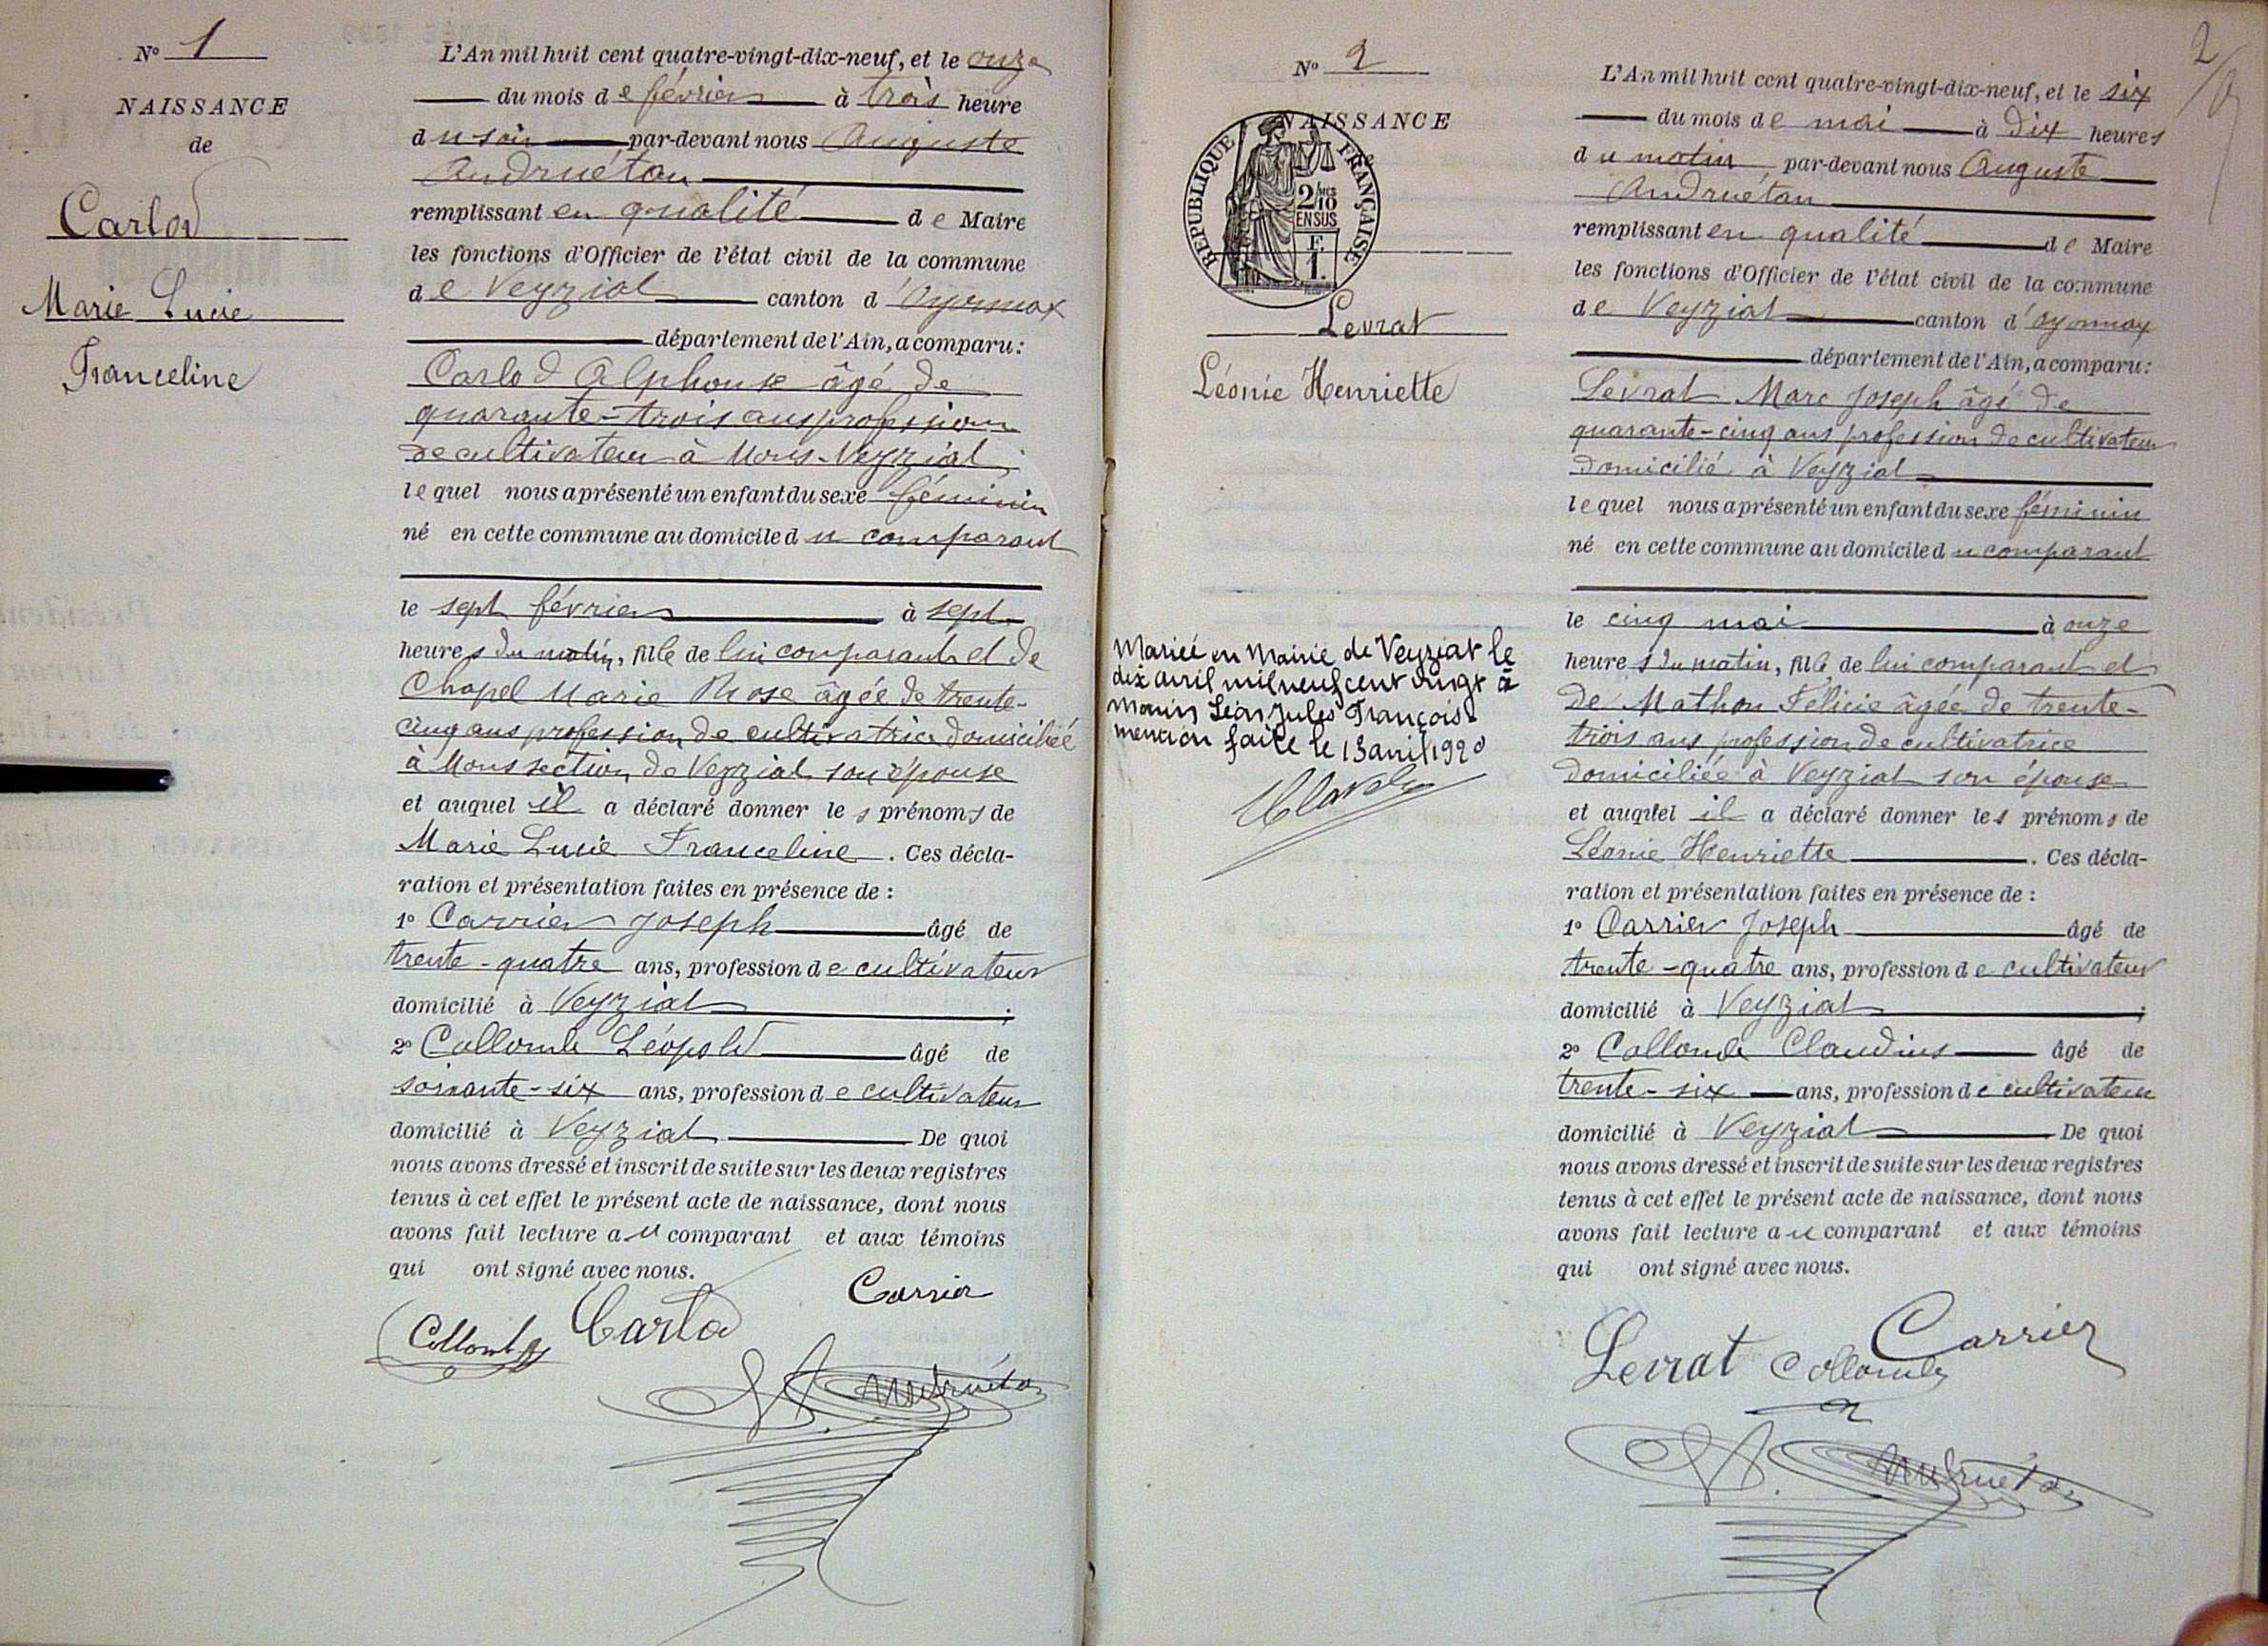 N° 1
NAISSANCE
de
Carlod
Marie Lucie
Franceline
L'An mil huit cent quatre-vingt-dix-neuf, et le onze
du mois de février à trois heure
du soir par-devant nous Auguste
Andruétan
remplissant en qualité de Maire
les fonctions d'Officier de l'état civil de la commune
de Veyziat canton d'Oyonnax
département de l'Ain, a comparu :
Carlod Alphonse âgé de
quarante-trois ans profession
de cultivateur à Mons-Veyziat
lequel nous a présenté un enfant du sexe féminin
né en cette commune au domicile du comparant
le sept février à sept
heures du matin, fille de lui comparant et de
Chapel Marie Rose âgée de trente-
cinq ans profession de cultivatrice domiciliée
à Mons section de Veyziat son épouse
et auquel il a déclaré donner les prénoms de
Marie Lucie Franceline. Ces décla-
ration et présentation faites en présence de :
1° Carrier Joseph âgé de
trente-quatre ans, profession de cultivateur
domicilié à Veyziat ;
2° Collomb Léopold âgé de
soixante-six ans, profession de cultivateur
domicilié à Veyziat De quoi
nous avons dressé et inscrit de suite sur les deux registres
tenus à cet effet le présent acte de naissance, dont nous
avons fait lecture au comparant et aux témoins
qui ont signé avec nous.
Carrier
Collomb Carlod
A. Andruétan
2
N° 2
NAISSANCE
RÉPUBLIQUE FRANÇAISE
2/10 EN SUS
F. 1.
Levrat
Léonie Henriette
Mariée en Mairie de Veyziat le
dix avril mil neuf cent vingt à
Léon Jules François
mention faite le 13 avril 1920
L'An mil huit cent quatre-vingt-dix-neuf, et le six
du mois de mai à dix heures
du matin par-devant nous Auguste
Andruétan
remplissant en qualité de Maire
les fonctions d'Officier de l'état civil de la commune
de Veyziat canton d'oyonnax
département de l'Ain, a comparu :
Levrat Marc Joseph âgé de
quarante-cinq ans profession de cultivateur
domicilié à Veyziat
lequel nous a présenté un enfant du sexe féminin
né en cette commune au domicile du comparant
le cinq mai à onze
heures du matin, fille de lui comparant et
de Mathon Félicie âgée de trente-
trois ans profession de cultivatrice
domiciliée à Veyziat son épouse
et auquel il a déclaré donner les prénoms de
Léonie Henriette. Ces décla-
ration et présentation faites en présence de :
1° Carrier Joseph âgé de
trente-quatre ans, profession de cultivateur
domicilié à Veyziat ;
2° Collomb Claudius âgé de
trente-six ans, profession de cultivateur
domicilié à Veyziat De quoi
nous avons dressé et inscrit de suite sur les deux registres
tenus à cet effet le présent acte de naissance, dont nous
avons fait lecture au comparant et aux témoins
qui ont signé avec nous.
Levrat Collomb Carrier
A. Andruétan